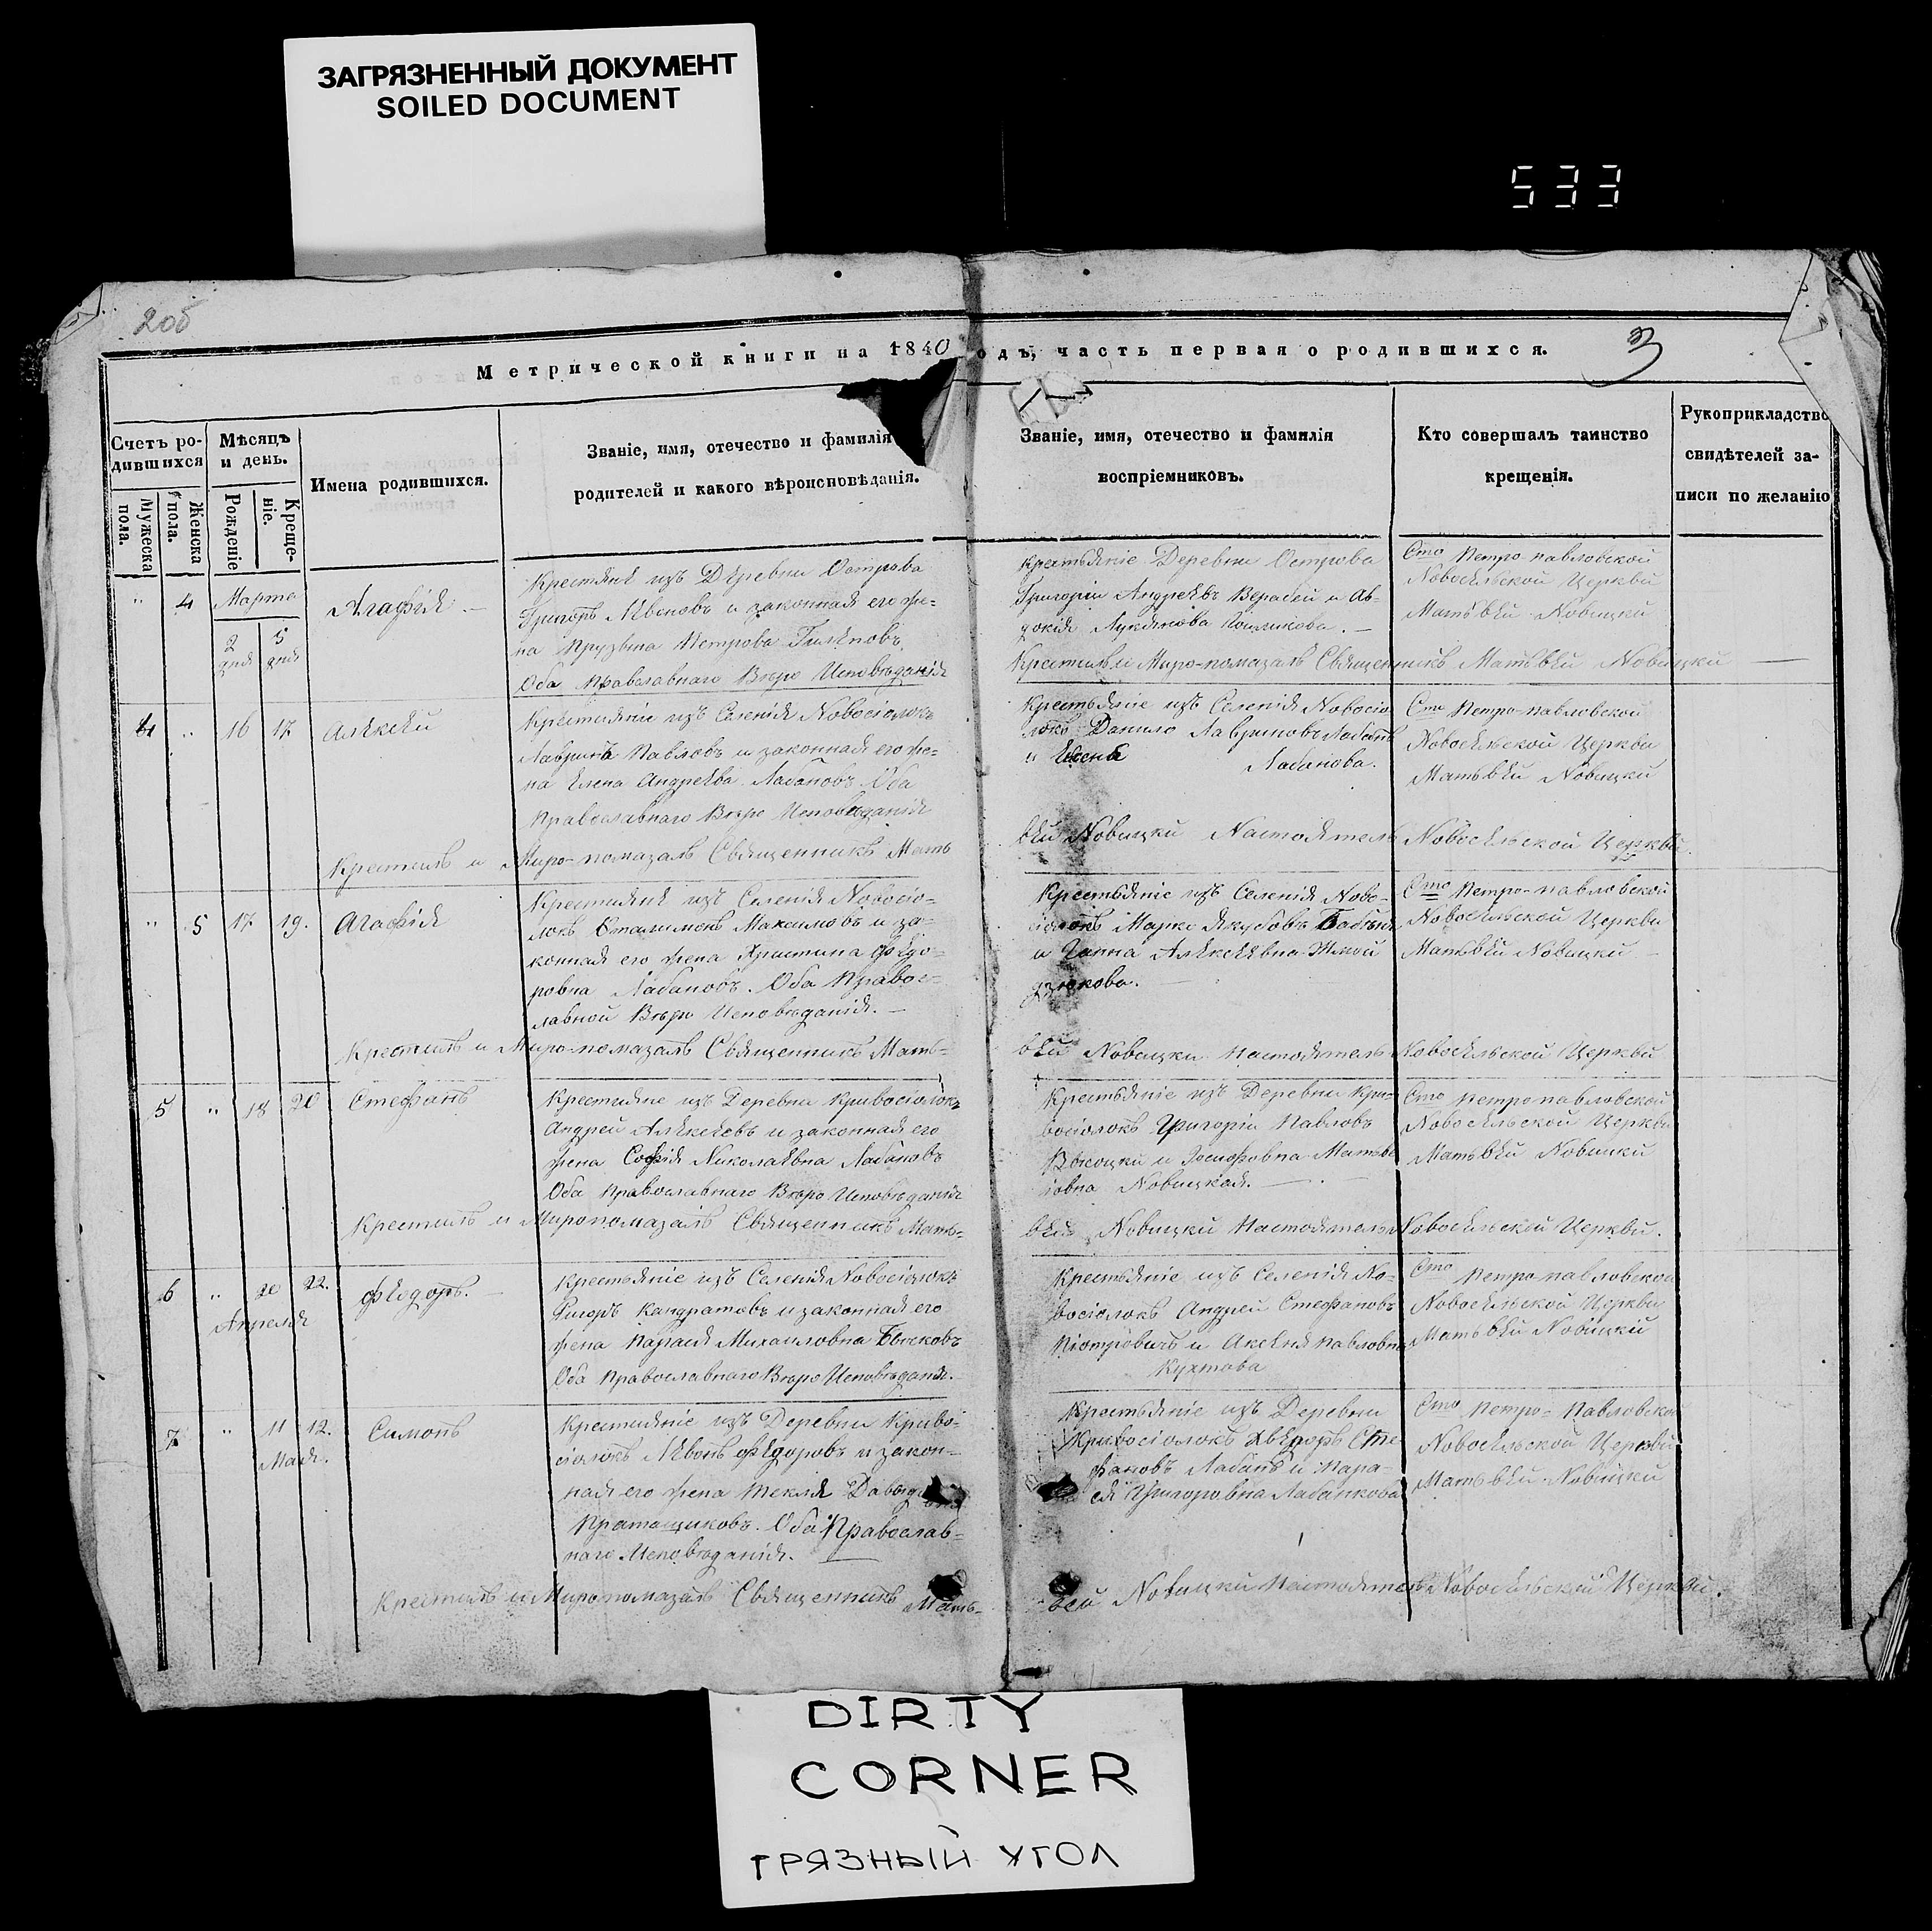 ЗАГРЯЗНЕННЫЙ ДОКУМЕНТ
SOILED DOCUMENT
533
206
Метрической книги на 1840 одъ, часть первая о родившихся.
3
Счетъ ро-
дившихся
Мужеска
пола.
Женска
пола.
Мѣсяцъ
и день.
Рожденіе
Креще-
ніе.
Имена родившихся.
Званіе, имя, отечество и фамилія
родителей и какого вѣроисповѣданія.
Званіе, имя, отечество и фамилія
воспріемниковъ.
Кто совершалъ таинство
крещенія.
Рукоприкладство
свидѣтелей за-
писи по желанію
" 4 Марта
2 дня 5 дня
Агафія
Крестяне изъ Деревни Острова
Григоръ Левоновъ и законная его же-
на Петрова
Оба Православнаго Вѣро Исповѣданія
Крестьяніе Деревни Острова
Григорій Андреевъ Верабей и Ав-
докія Лукянова
Сто Петро павловской
Новоселской Церкви
Матьвей Новицки
Крестилъ и Миро-помазалъ Священникъ Матьвей Новицки
4 " 16 17
Алексей
Крестияніе изъ Селенія Новосіолокъ
Лавринъ Павловъ и законная его же-
на Елена Андреева Лабановъ Оба
Православнаго Вѣро Исповѣданія
Крестьяніе изъ Селенія Новосіо
локъ Данило Лавриновъ Лабанъ
и Лабанова.
Сто Петро-павловской
Новоселской Церкви
Матьвей Новицки
Крестилъ и Миро-помазалъ Священникъ Мать
вей Новицки Настоятель Новоселской Церкви
" 5 17 19.
Агафія
Крестияне изъ Селенія Новосіо-
локъ Максимовъ и за-
конная его жена Христина Федо-
ровна Лабановъ. Оба Правос-
лавной Вѣро Исповѣданія.
Крестьяніе изъ Селенія Ново-
сіолокъ Марко Якубовъ
и Ганна Алексеевна
Сто Петро-павловской
Новоселской Церкви
Матьвей Новицки
Крестилъ и Миро-помазалъ Священникъ Мать-
вей Новицки Настоятель Новоселской Церкви
5 " 18 20
Стефанъ
Крестияне изъ Деревни Кривосіолокъ
Андрей Алексеевъ и законная его
жена Софія Николаевна Лабановъ
Оба Православнаго Вѣро Исповѣданія
Крестьяніе изъ Деревни Кри-
восіолокъ Григорій Павловъ
и Матьве
іовна Новицкая.
Сто Петро павловской
Новоселской Церкви
Матьвей Новицки
Крестилъ и Миропомазалъ Священникъ Мать-
вей Новицки Настоятель Новоселской Церкви.
6 " 20 22.
Апреля
Федоръ.
Крестьяніе изъ Селенія Новосіолокъ
Кандратовъ и законная его
жена Парася Михаиловна
Оба Православнаго Вѣро Исповѣданія.
Крестьяніе изъ Селенія Но-
восіолокъ Андрей Стефановъ
Піотровичъ и Аксеня Павловна
Кухтова
Сто Петро павловской
Новоселской Церкви
Матьвей Новицки
7 " 11 12.
Мая.
Симонъ
Крестияніе изъ Деревни Криво-
сіолокъ Левонъ Федоровъ и закон-
ная его жена Текля
Оба Православ-
наго Исповѣданія.
Крестьяніе изъ Деревни
Кривосіолокъ Сте
фановъ Лабанъ и Пара-
ся Григоровна Лабанкова
Сто Петро-Павловской
Новоселской Церкви
Матьвей Новицки
Крестилъ и Миропомазалъ Священникъ Мать-
вей Новицки Настоятель Новоселской Церкви.
DIRTY
CORNER
ГРЯЗНЫЙ УГОЛ